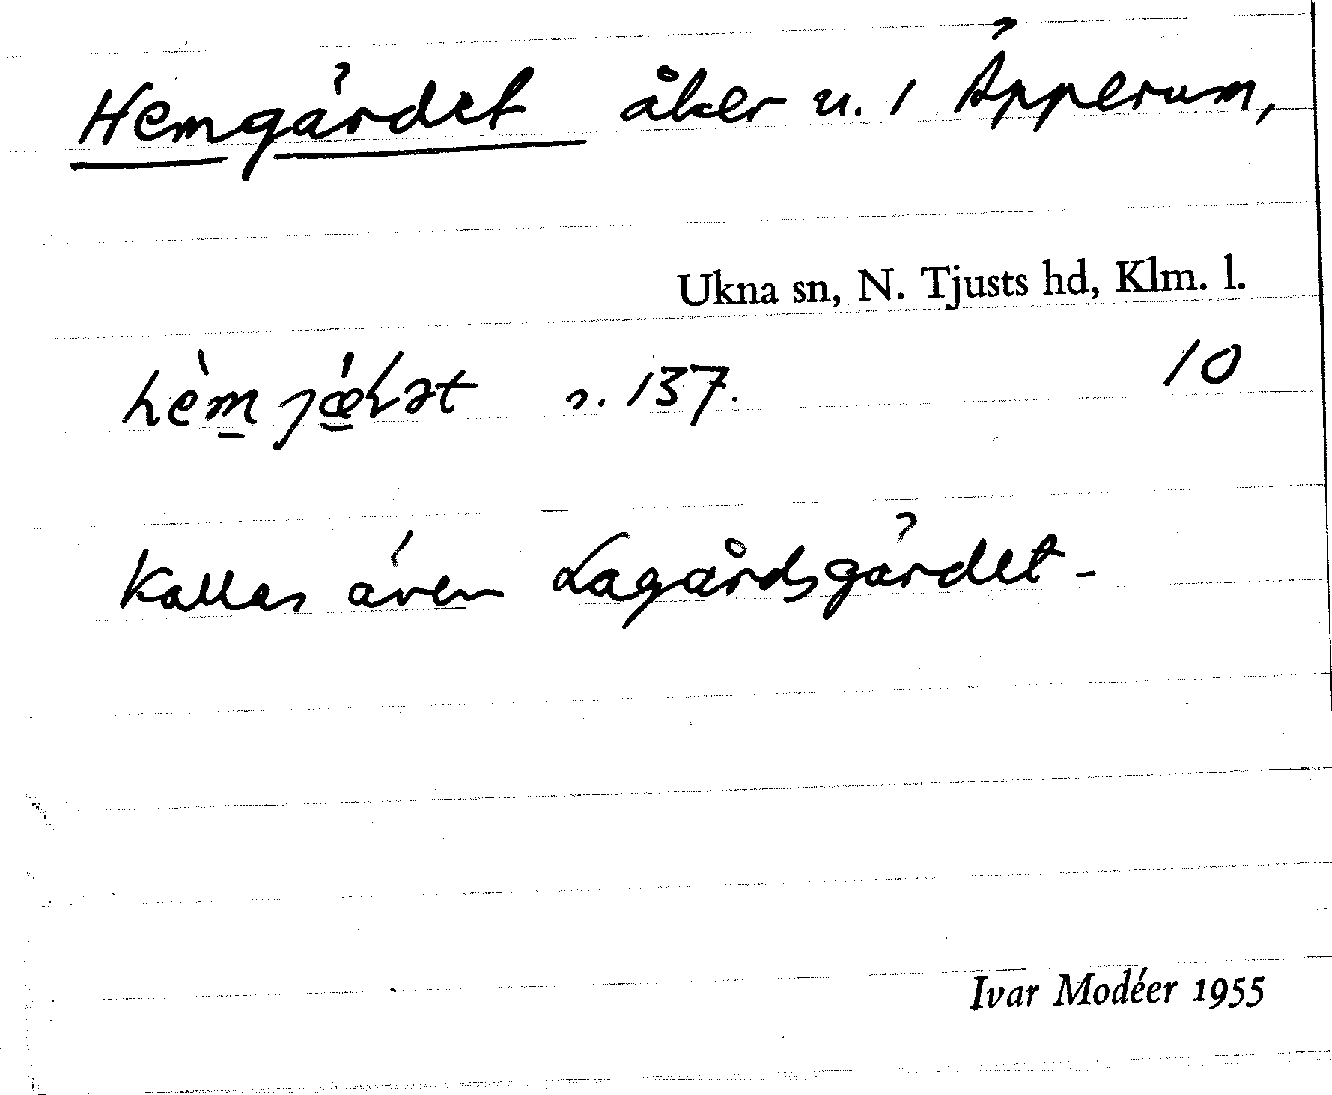 Hemgärdet åker u. 1 Äpperum,
Ukna sn, N. Tjusts hd, Klm. l.
s. 137. 10
Kallas även Lagårdsgärdet-
Ivar Modéer 1955